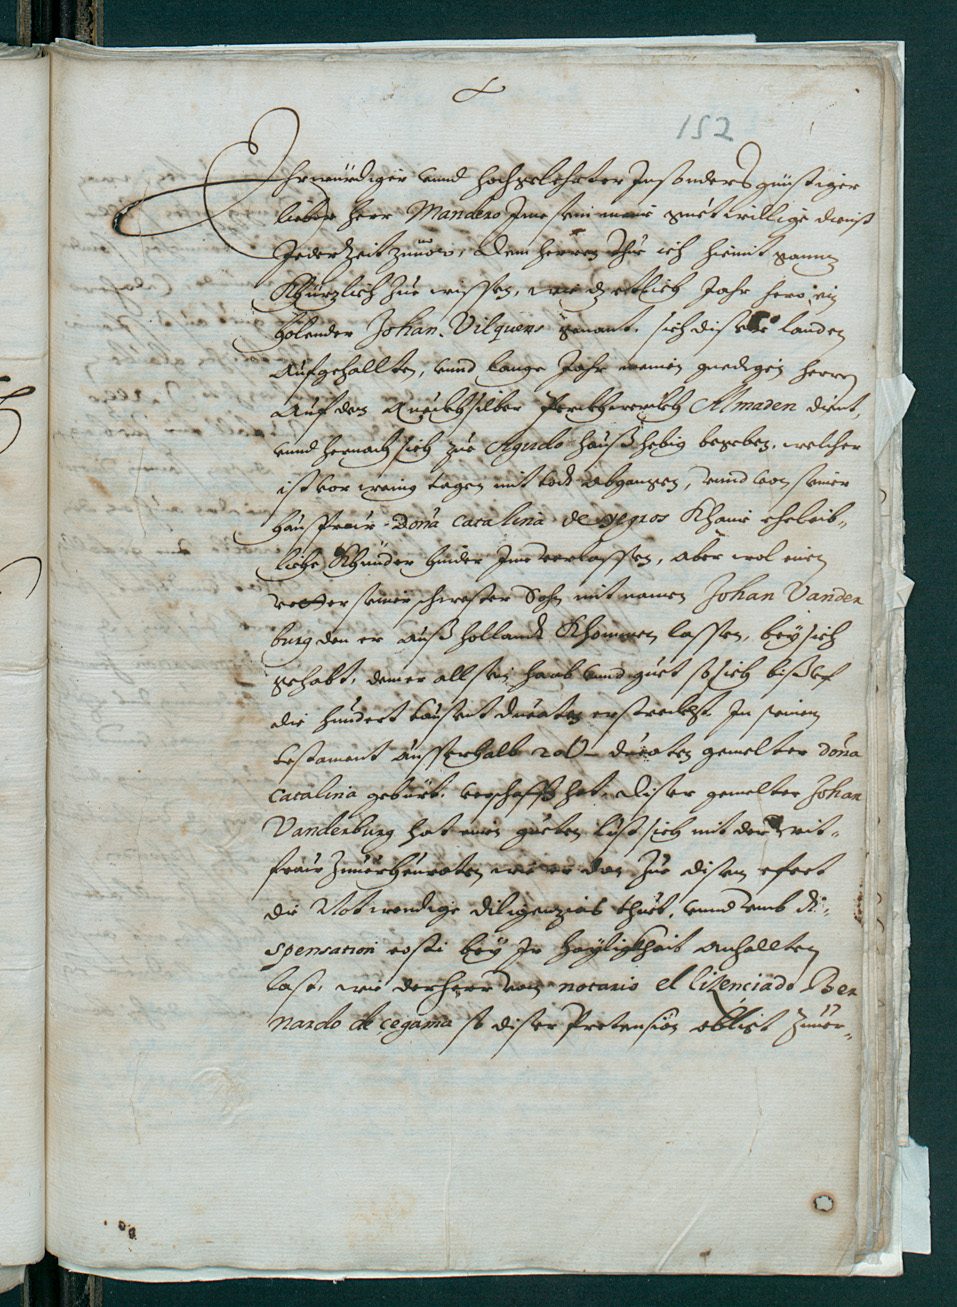 152
Ehrwürdiger unnd hochgelehrter Insonders günstiger
lieber herr Mandero Ime sein meine guet willige dienst
Jederzeit zuuor, Dem herren thue ich hiemit ganz
Khürzlich zue wissen, wie dz etlich Jahr hero ein
Holender Johan Vilquens genant, sich diser landen
Aufgehallten, unnd lange Jahr meinen gnedigen herren
Auf dem Queckhsilber Perckhwerckh Almaden dient,
unnd hernach sich zue Agudo haußhebig begeben, welcher
ist vor wenig tagen mit todt abgangen, unnd von seiner
haußfrau Dona Catalina de yegros Khaine eheleib-
liche Khinder hinder Ime verlassen, aber wol einen
vetter seiner schwester Sohn mit namen Johan Vanden
burg den er auß hollandt Khommen lassen, bey sich
gehabt, deme er all sein haab unnd guet so sich biß auf
die hundert tausent ducaten erstreckht In seinem
testament ausserhalb ducaten gemelter dona
Catalina gebürt, verschafft hat, diser gemelter Johan
Vandenburg hat einen gueten lust sich mit der wit-
frau Zuuerheuraten wie er dan zue disem efect
die Notwendige diligenzias thuet, unnd umb di-
spensation bey Ir heyligkheit anhallten
last, wie der herr vom notario el lizenciado Ber
nardo de cegama so diser Pretension obligt Zuuer-